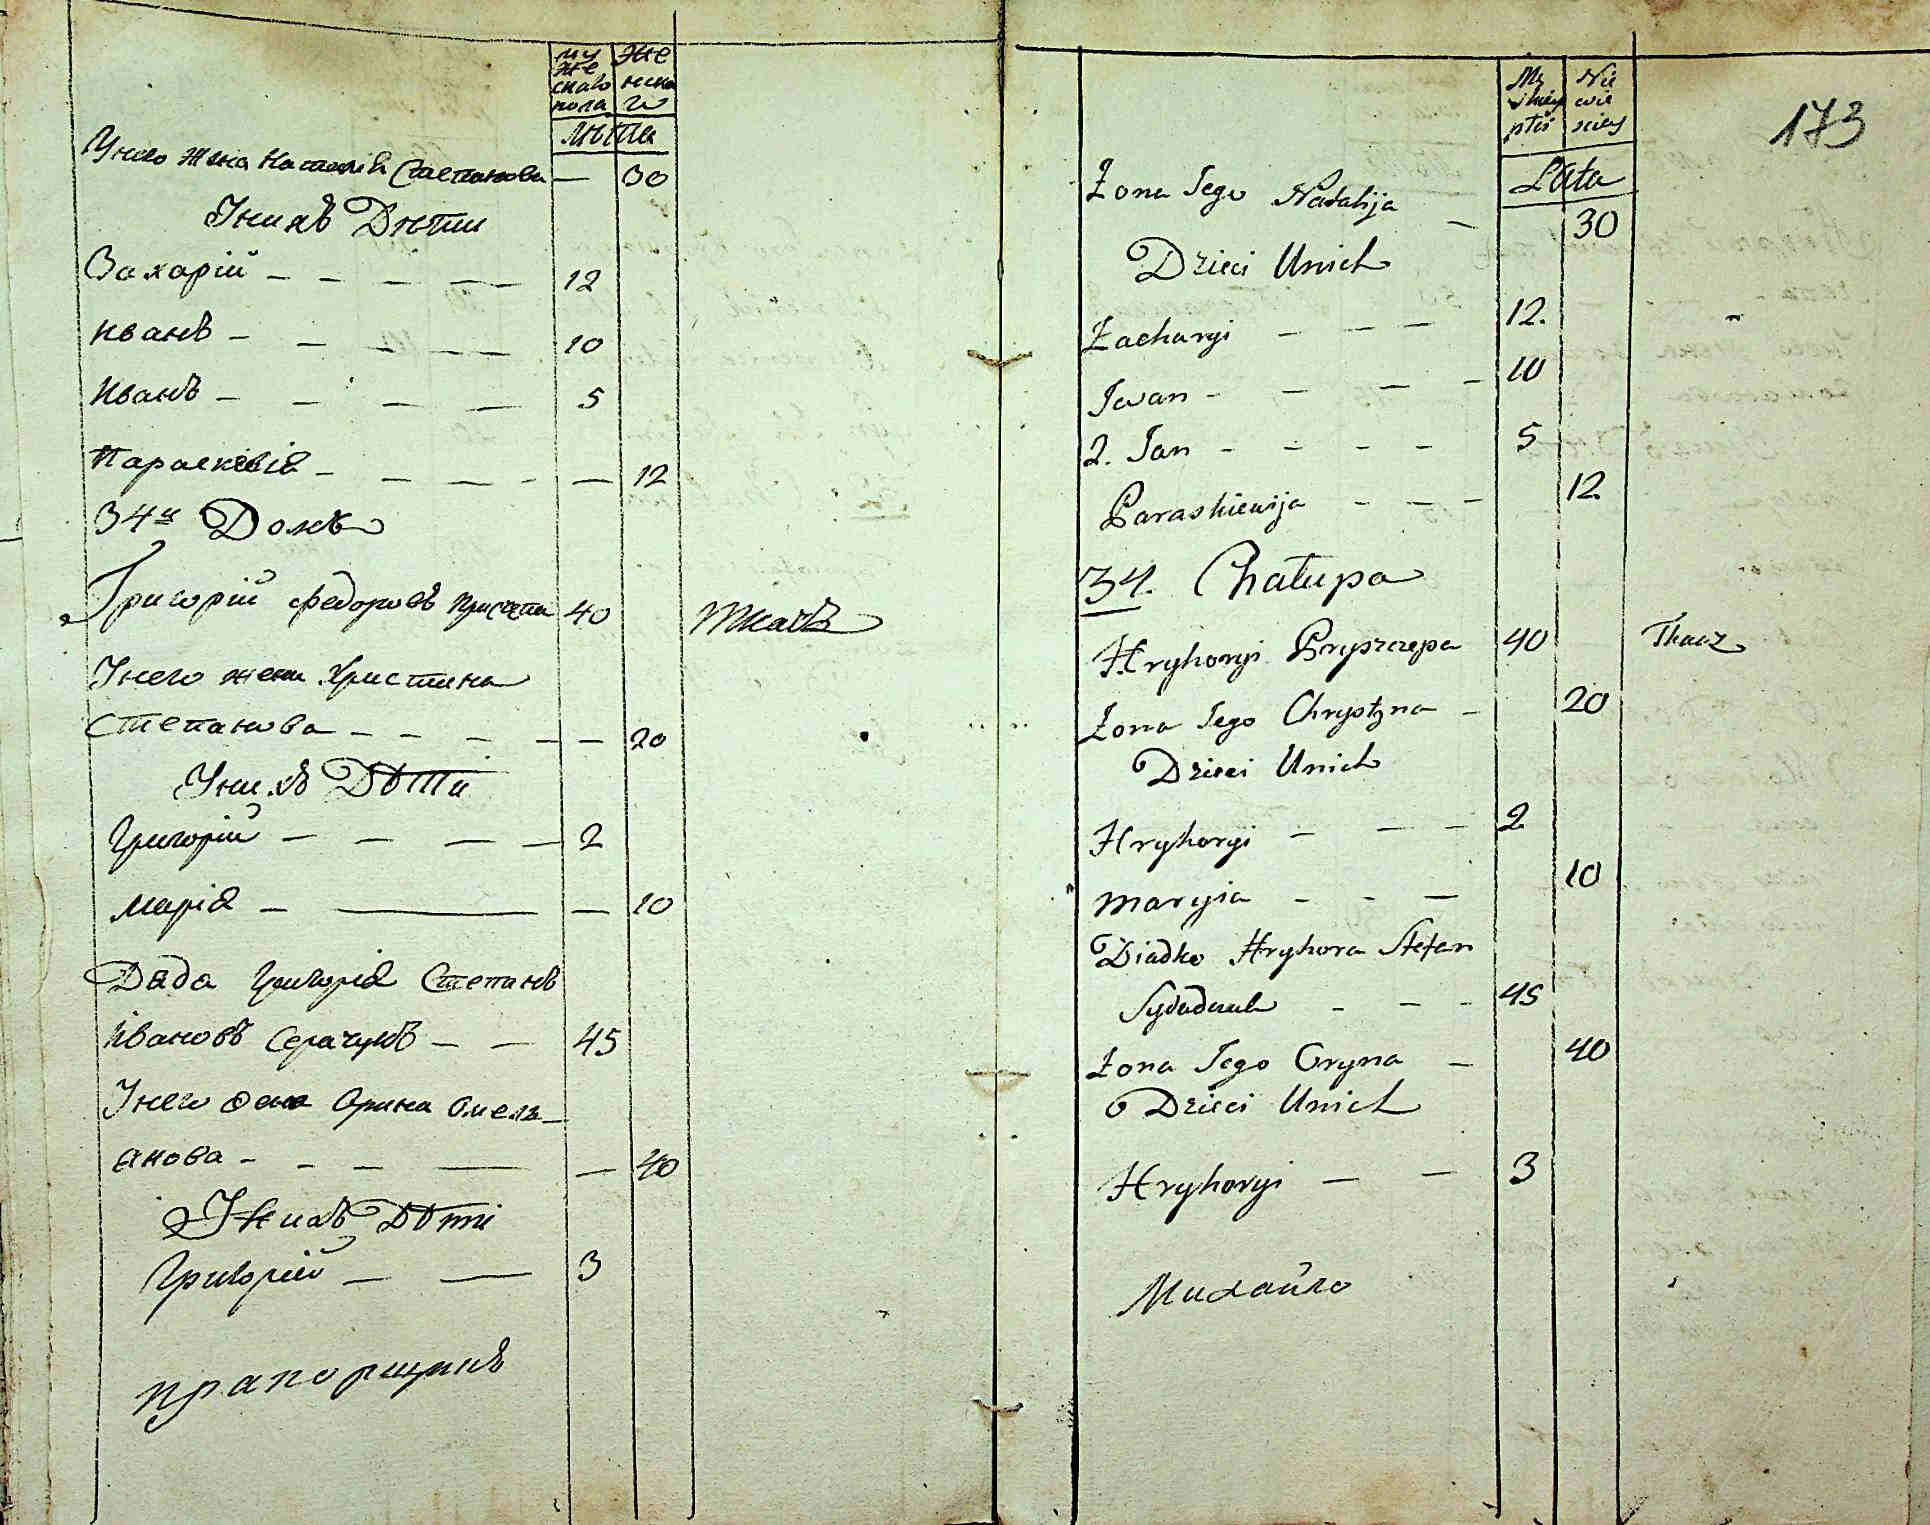 мужескаго пола
женскаго
Лѣта
У него жена Наталія Степанова — 30
У нихъ Дѣти
Захарій — — — — — 12
Иванъ — — — — — 10
Иванъ — — — — 5
Параскѣвія — — — — — — 12
34й Домъ
Григорій Федоровъ Присчепа 40 Ткачъ
У него жена Христина
Степанова — — — — — — 20
У нихъ Дѣти
Григорій — — — — 2
Марія — — — 10
Дядя Григорія Степанъ
Ивановъ — — 45
У него жена Орина Омель-
янова — — — — — 40
У нихъ Дѣти
Григорій — — 3
прапорщикъ
173
Męskiey płci
Niewieściey
Lata
Żona Jego Natalija — 30
Dzieci Unich
Zacharyi — — — 12.
Iwan — — — — 10
2. Jan — — — — 5
Paraskiewija — — — 12
34. Chałupa
Hryhoryi Pryszczepa 40 Tkacz
Żona Jego Chrystyna — 20
Dzieci Unich
Hryhoryi — — — 2
Maryia — — — 10
Diadko Hryhora Stefan
— — — 45
Żona Jego Oryna — 40
Dzieci Unich
Hryhoryi — — 3
Михайло